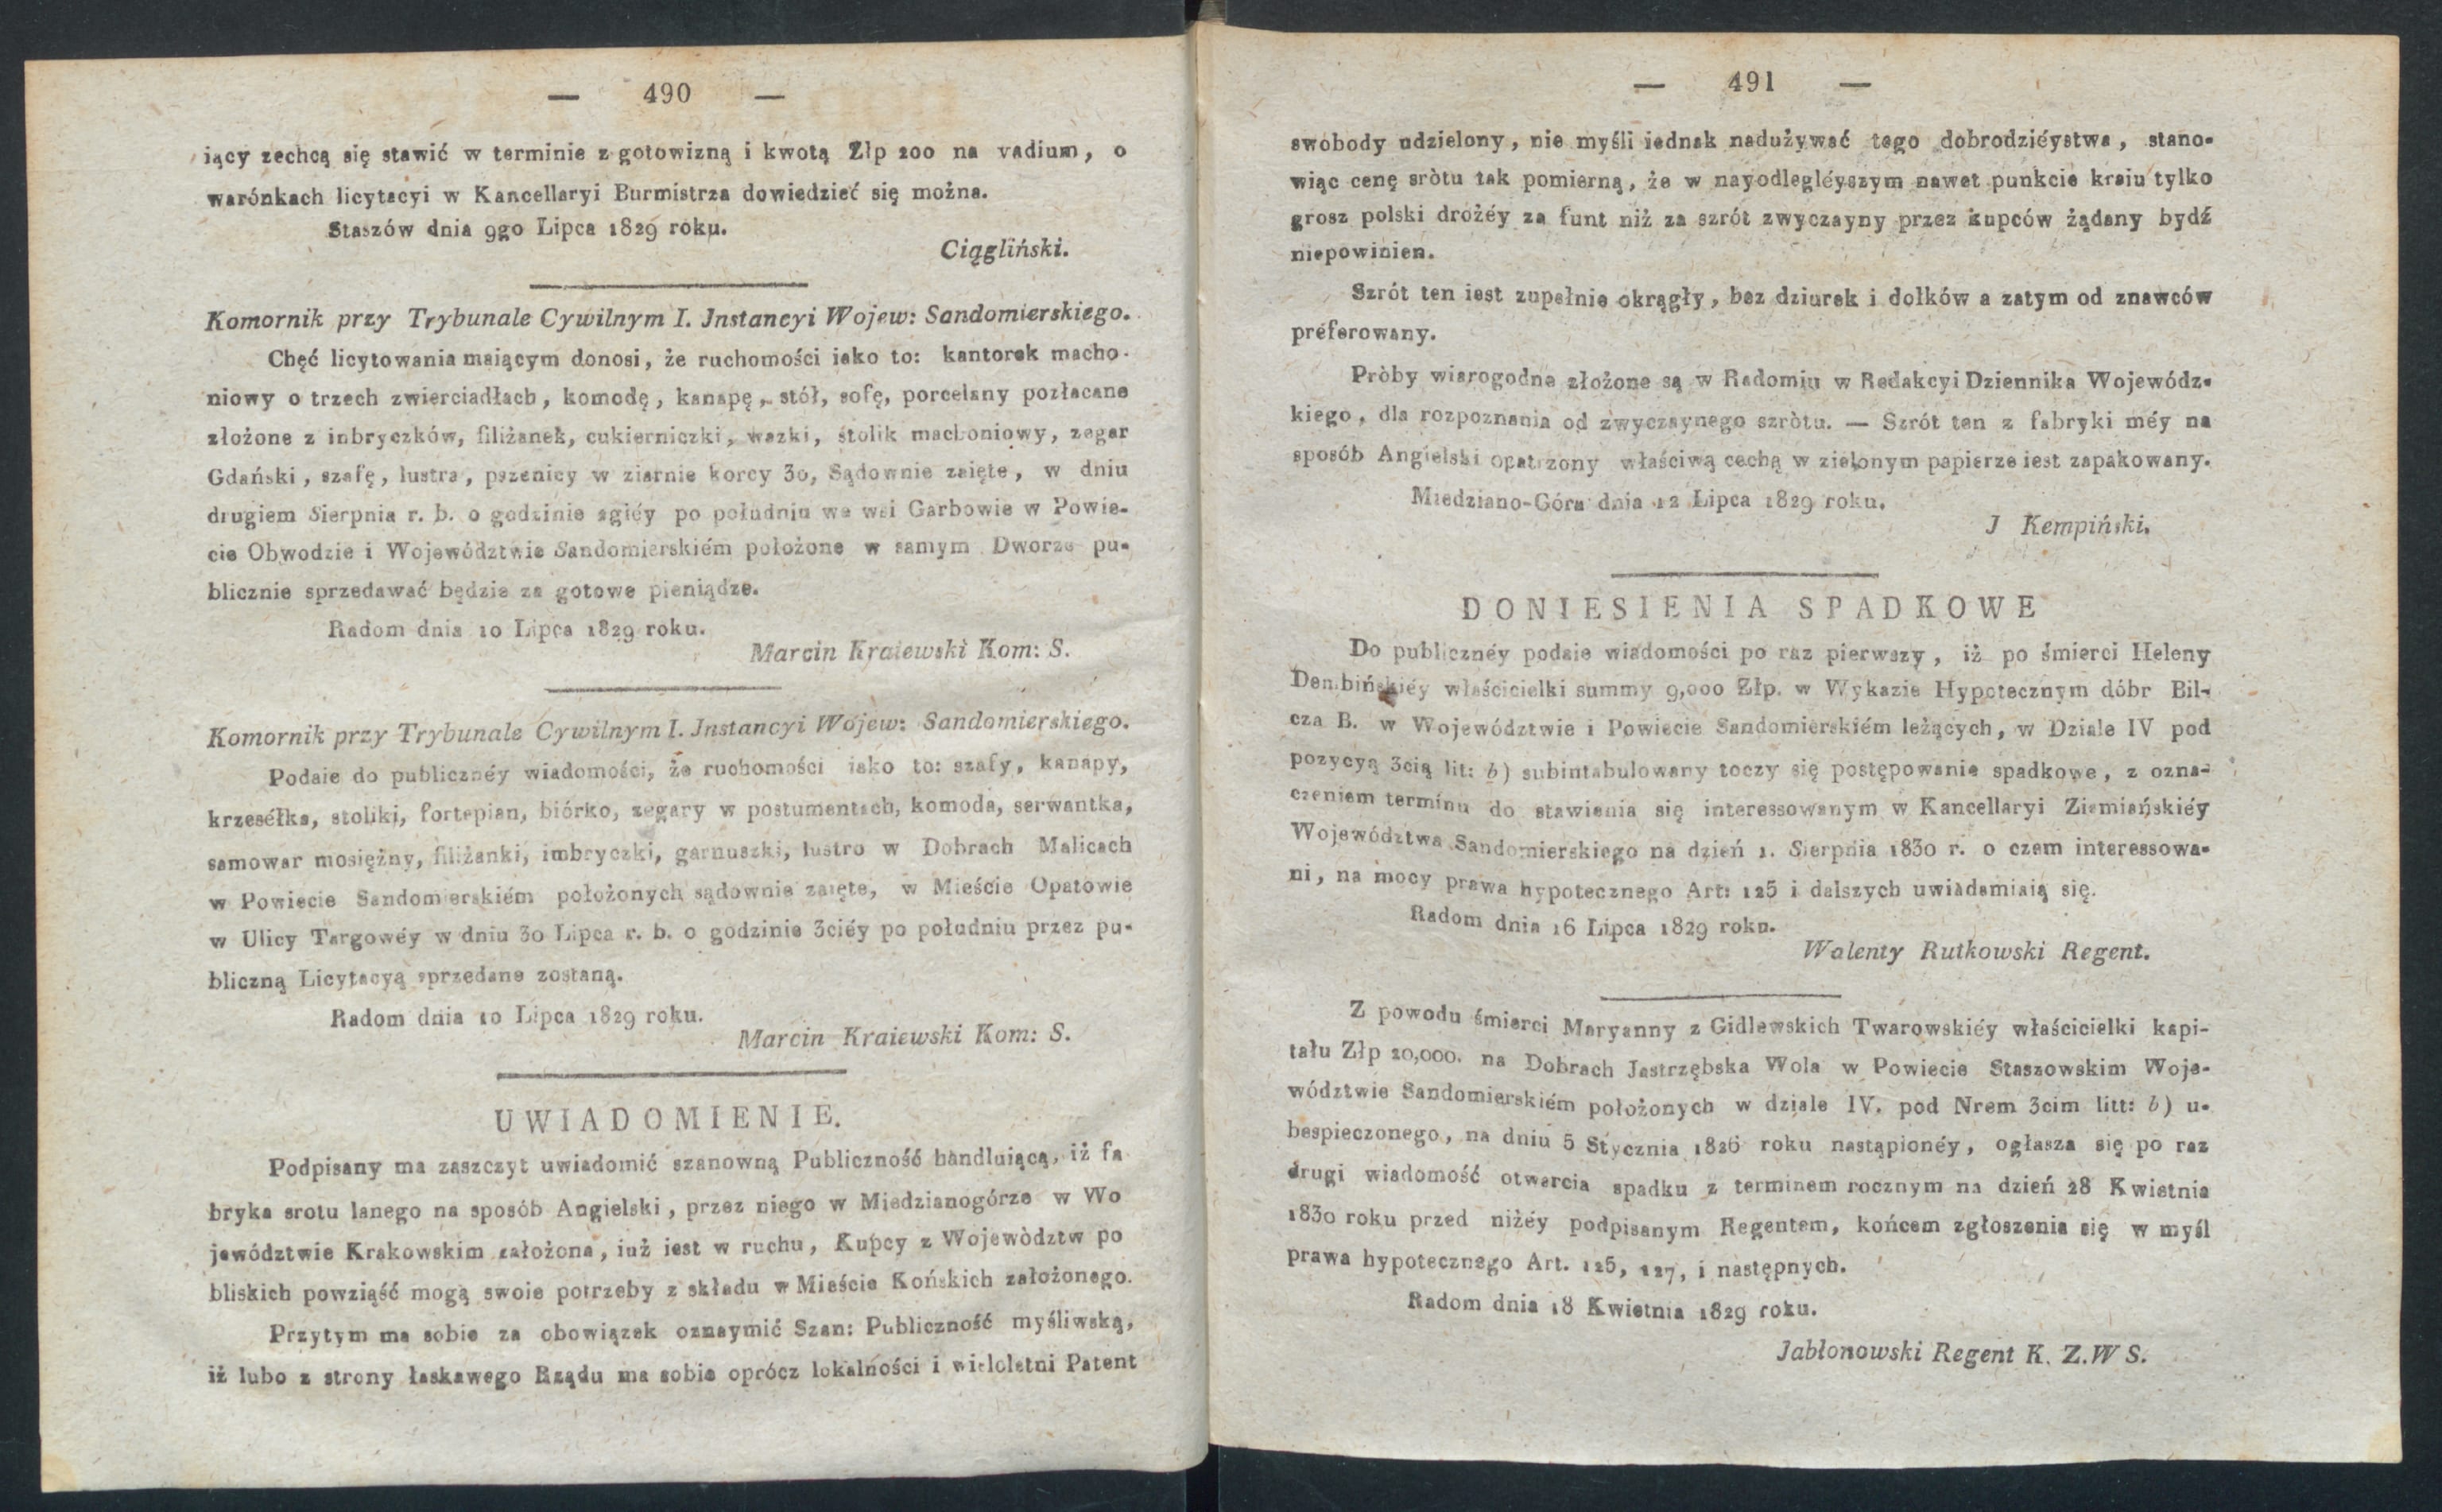 — 490 —
iący zechcą się stawić w terminie z gotowizną i kwotą Złp 200 na vadium, o
warónkach licytacyi w Kancellaryi Burmistrza dowiedzieć się można.
Staszów dnia 9go Lipca 1829 roku.
Ciągliński.
Komornik przy Trybunale Cywilnym I. Jnstancyi Wojew: Sandomierskiego.
Chęć licytowania maiącym donosi, że ruchomości iako to: kantorek macho-
niowy o trzech zwierciadłach, komodę, kanapę, stół, sofę, porcelany pozłacane
złożone z inbryczków, filiżanek, cukierniczki, wazki, stolik machoniowy, zegar
Gdański, szafę, lustra, pszenicy w ziarnie korcy 30, Sądownie zaięte, w dniu
drugiem Sierpnia r. b. o godzinie 2giéy po południu we wsi Garbowie w Powie-
cie Obwodzie i Województwie Sandomierskiém położone w samym Dworze pu-
blicznie sprzedawać będzie za gotowe pieniądze.
Radom dnia 10 Lipca 1829 roku.
Marcin Kraiewski Kom: S.
Komornik przy Trybunale Cywilnym I. Jnstancyi Wojew: Sandomierskiego.
Podaie do publicznéy wiadomości, że ruchomości iako to: szafy, kanapy,
krzesełka, stoliki, fortepian, biórko, zegary w postumentach, komoda, serwantka,
samowar mosiężny, filiżanki, imbryczki, garnuszki, lustro w Dobrach Malicach
w Powiecie Sandomierskiém położonych sądownie zaięte, w Mieście Opatowie
w Ulicy Targowéy w dniu 30 Lipca r. b. o godzinie 3ciéy po południu przez pu-
bliczną Licytacyą sprzedane zostaną.
Radom dnia 10 Lipca 1829 roku.
Marcin Kraiewski Kom: S.
UWIADOMIENIE.
Podpisany ma zaszczyt uwiadomić szanowną Publiczność handluiącą, iż fa
bryka srotu lanego na sposób Angielski, przez niego w Miedzianogórze w Wo
jewództwie Krakowskim założona, iuż iest w ruchu, Kupcy z Wojewòdztw po
bliskich powziąść mogą swoie potrzeby z składu w Mieście Końskich założonego.
Przytym ma sobie za obowiązek oznaymić Szan: Publiczność myśliwską,
iż lubo z strony łaskawego Rządu ma sobie oprócz lokalności i wieloletni Patent
— 491 —
swobody udzielony, nie myśli iednak nadużywać tego dobrodziéystwa, stano-
wiąc cenę sròtu tak pomierną, że w nayodległéyszym nawet punkcie kraiu tylko
grosz polski drożéy za funt niż za szrót zwyczayny przez kupców żądany bydź
niepowinien.
Szrót ten iest zupełnie okrągły, bez dziurek i dołków a zatym od znawców
préferowany.
Pròby wiarogodne złożone są w Radomiu w Redakcyi Dziennika Wojewódz-
kiego, dla rozpoznania od zwyczaynego szròtu. — Szrót ten z fabryki méy na
sposób Angielski opatrzony właściwą cechą w zielonym papierze iest zapakowany.
Miedziano-Góra dnia 12 Lipca 1829 roku.
J Kempiński.
DONIESIENIA SPADKOWE
Do publicznéy podaie wiadomości po raz pierwszy, iż po śmierci Heleny
Dembińskiéy właścicielki summy 9,000 Złp. w Wykazie Hypotecznym dóbr Bil-
cza B. w Województwie i Powiecie Sandomierskiém leżących, w Dziale IV pod
pozycyą 3cią lit: b) subintabulowany toczy się postępowanie spadkowe, z ozna-
czeniem terminu do stawienia się interessowanym w Kancellaryi Ziemiańskiéy
Województwa Sandomierskiego na dzień 1. Sierpnia 1830 r. o czem interessowa-
ni, na mocy prawa hypotecznego Art: 125 i dalszych uwiadamiaią się.
Radom dnia 16 Lipca 1829 roku.
Walenty Rutkowski Regent.
Z powodu śmierci Maryanny z Gidlewskich Twarowskiéy właścicielki kapi-
tału Złp 20,000. na Dobrach Jastrzębska Wola w Powiecie Staszowskim Woje-
wództwie Sandomierskiém położonych w dziale IV. pod Nrem 3cim litt: b) u-
bespieczonego, na dniu 5 Stycznia 1826 roku nastąpionéy, ogłasza się po raz
drugi wiadomość otwarcia spadku z terminem rocznym na dzień 28 Kwietnia
1830 roku przed niżéy podpisanym Regentem, końcem zgłoszenia się w myśl
prawa hypotecznego Art. 125, 127, i następnych.
Radom dnia 18 Kwietnia 1829 roku.
Jabłonowski Regent K. Z. W S.